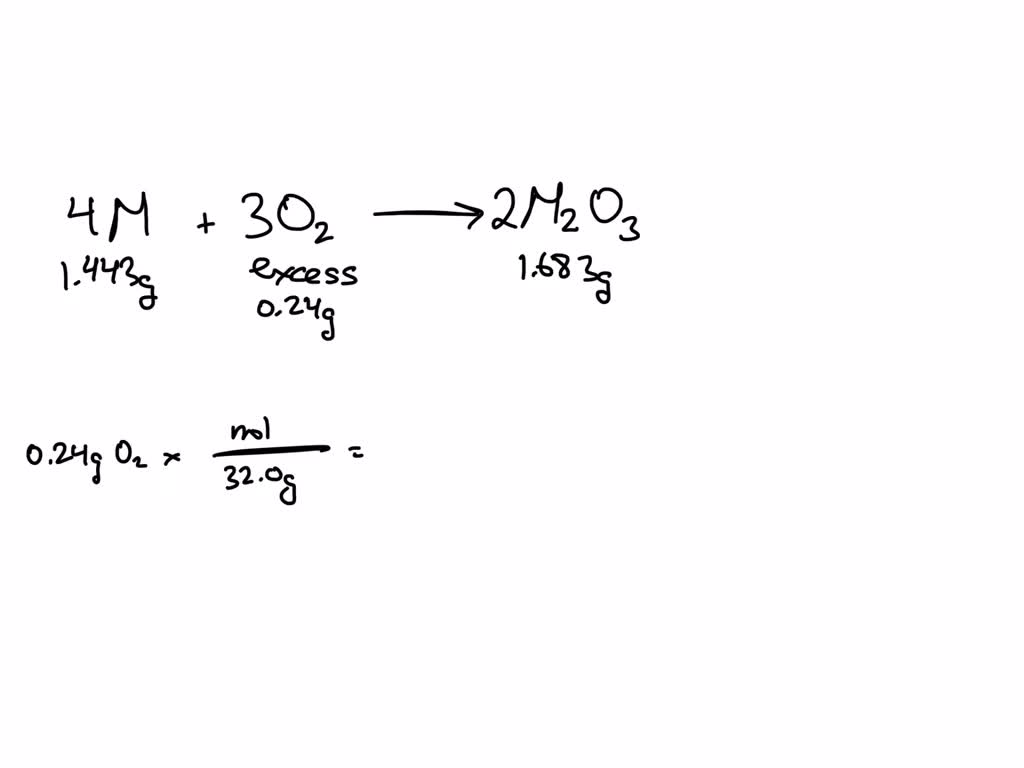 4M + 3O₂ → 2M₂O₃
1.443g excess 1.683g
0.24g
0.24g O₂ × mol / 32.0g =